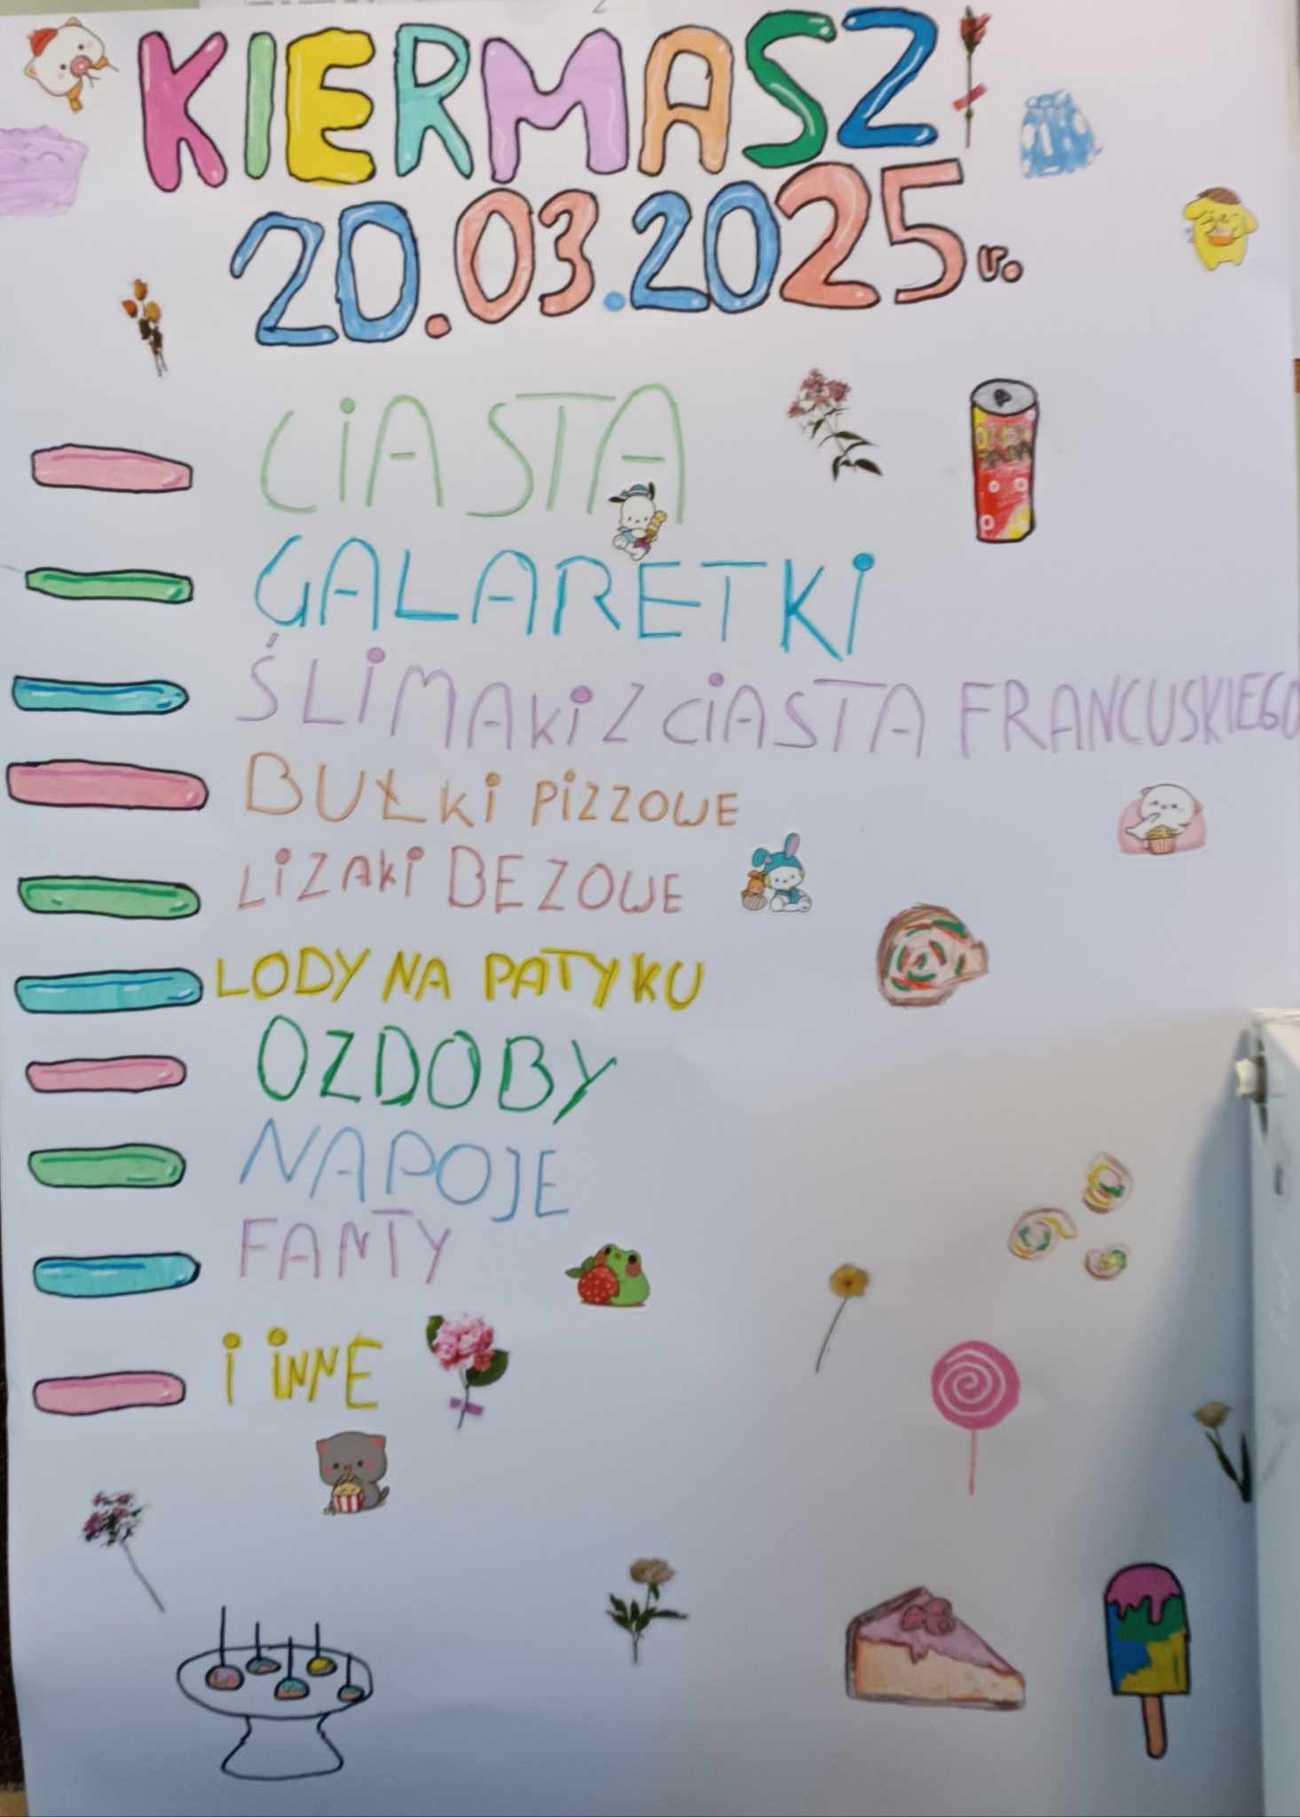 KIERMASZ
20.03.2025 r.
CIASTA
GALARETKI
ŚLIMAKI Z CIASTA FRANCUSKIEGO
BUŁKI PIZZOWE
LIZAKI BEZOWE
LODY NA PATYKU
OZDOBY
NAPOJE
FANTY
I INNE